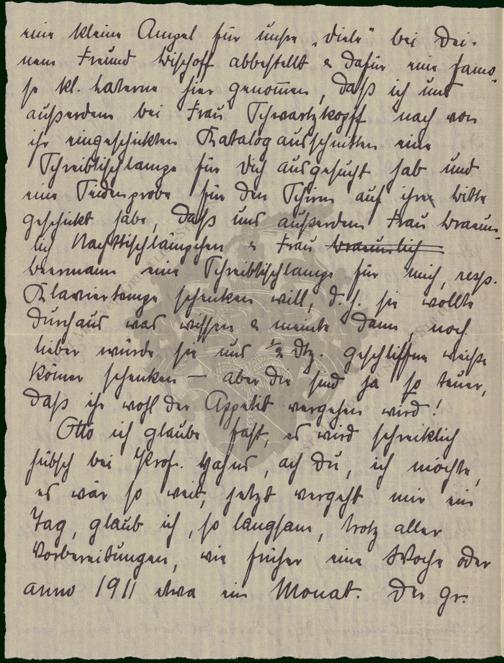 eine kleine Ampel für unsre „Diele" bei Dei-
nem Freund Bischoff abbestellt & dafür eine famo-
se kl. Laterne hier genommen, daß ich uns
außerdem bei Frau Schwartzkopff nach von
ihr eingeschickten Katalogausschnitten eine
Schreibtischlampe für Dich ausgesucht hab und
eine Seidenprobe für den Schirm auf ihre Bitte
geschickt habe, daß uns außerdem Frau Braeun-
lich Nachttischlämpchen & Frau Braeunlich
Beermann eine Schreibtischlampe für mich, resp.
Klavierlampe schenken will, d. h. sie wollte
durchaus was wissen & meinte dann, noch
lieber würde sie uns ½ Dtz. geschliffene
Römer schenken — aber die sind ja so teuer,
daß ihr wohl der Appetit vergehen wird!
Otto ich glaube fast, es wird schrecklich
hübsch bei Prof. Hahns, ach Du, ich möchte,
es wär so weit, jetzt vergeht mir ein
Tag, glaub ich, so langsam, trotz aller
Vorbereitungen, wie früher eine Woche oder
anno 1911 etwa ein Monat. Der gr.